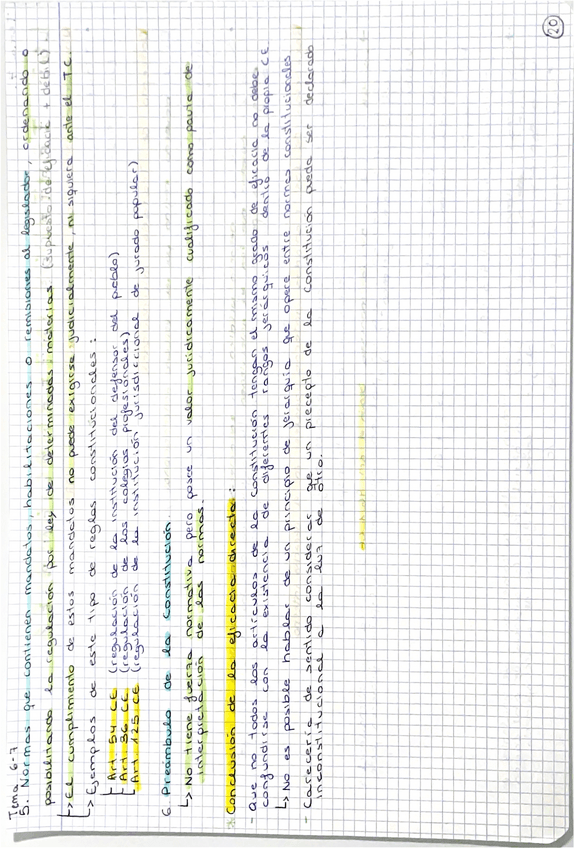 Tema 6-7
5. Normas que contienen mandatos, habilitaciones o remisiones al legislador, ordenando o
posibilitando la regulación por ley de determinadas materias (supuesto de eficacia + débil).
↳ El cumplimiento de estos mandatos no puede exigirse judicialmente, ni siquiera ante el T.C.
↳ Ejemplos de este tipo de reglas constitucionales:
Art. 54 CE (regulación de la institución del defensor del pueblo)
Art. 36 CE (regulación de los colegios profesionales)
Art. 125 CE (regulación de la institución jurisdiccional de jurado popular)
6. Preámbulo de la Constitución.
↳ No tiene fuerza normativa pero posee un valor jurídicamente cualificado como pauta de
interpretación de las normas.
Conclusión de la eficacia directa:
- Que no todos los artículos de la Constitución tengan el mismo grado de eficacia no debe
confundirse con la existencia de diferentes rangos jerárquicos dentro de la propia CE
↳ No es posible hablar de un principio de jerarquía que opere entre normas constitucionales
- Carecería de sentido considerar que un precepto de la Constitución pueda ser declarado
inconstitucional a la luz de otro.
20